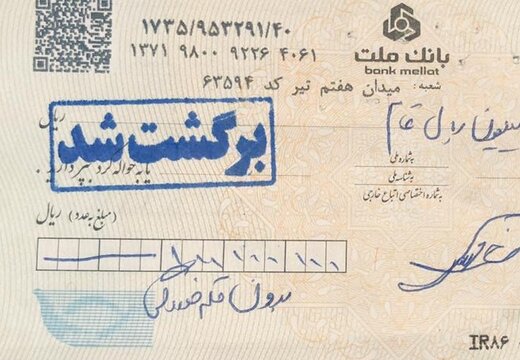 ۱۷۳۵/۹۵۳۲۹۱/۴۰
۱۳۷۱ ۹۸۰۰ ۹۲۲۶ ۴۰۶۱
بانک ملت
bank mellat
شعبه: میدان هفتم تیر کد ۶۳۵۹۴
ریال
میلیون ریال تمام
برگشت شد
یا به حواله کرد بپردازید.
به شماره ملی
به شناسه ملی
به شماره اختصاصی اتباع خارجی
(مبلغ به عدد) ریال
بدون قلم خوردگی
IR۸۶